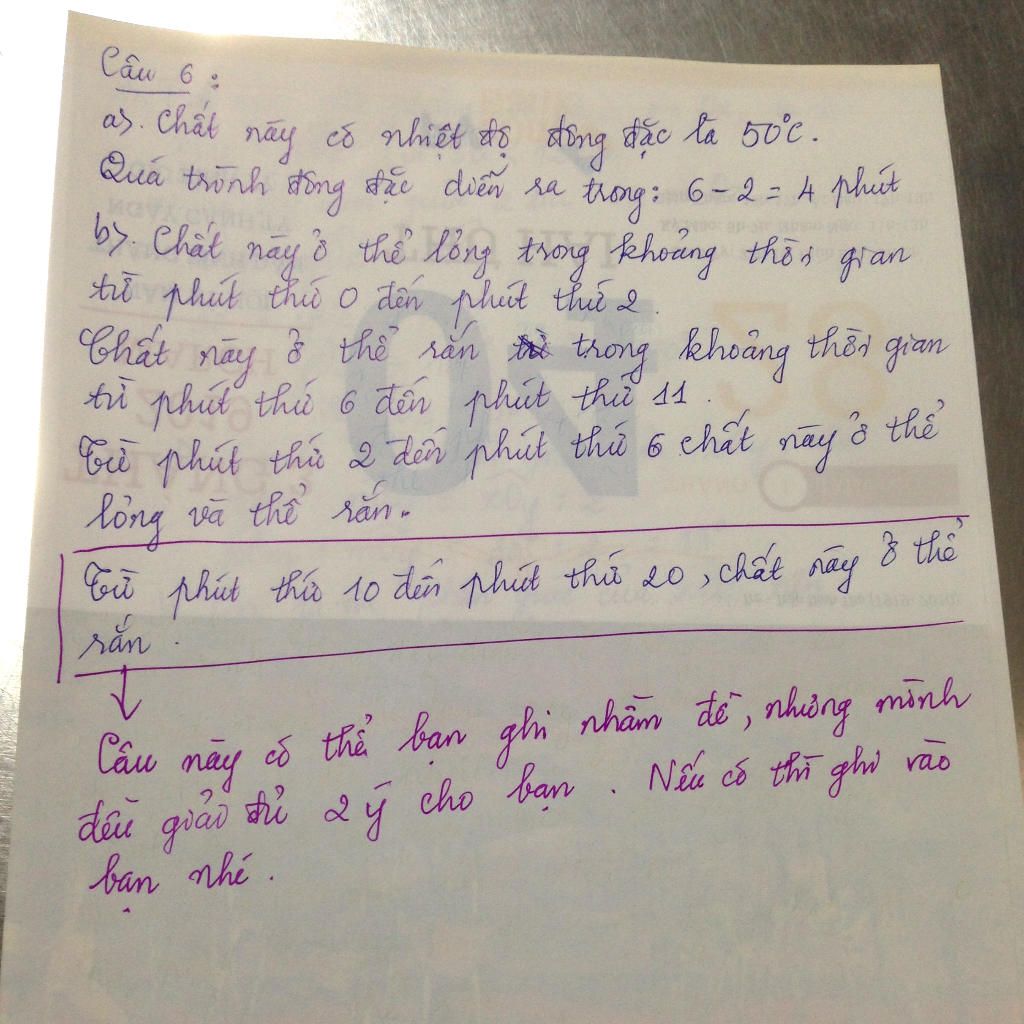 Câu 6 :
a>. Chất này có nhiệt độ đông đặc là 50°C.
Quá trình đông đặc diễn ra trong: 6 - 2 = 4 phút
b>. Chất này ở thể lỏng trong khoảng thời gian
từ phút thứ 0 đến phút thứ 2.
Chất này ở thể rắn trong khoảng thời gian
từ phút thứ 6 đến phút thứ 11.
Từ phút thứ 2 đến phút thứ 6 chất này ở thể
lỏng và thể rắn.
Từ phút thứ 10 đến phút thứ 20, chất này ở thể
rắn.
Câu này có thể bạn ghi nhầm đề, nhưng mình
đều giải đủ 2 ý cho bạn. Nếu có thì ghi vào
bạn nhé.